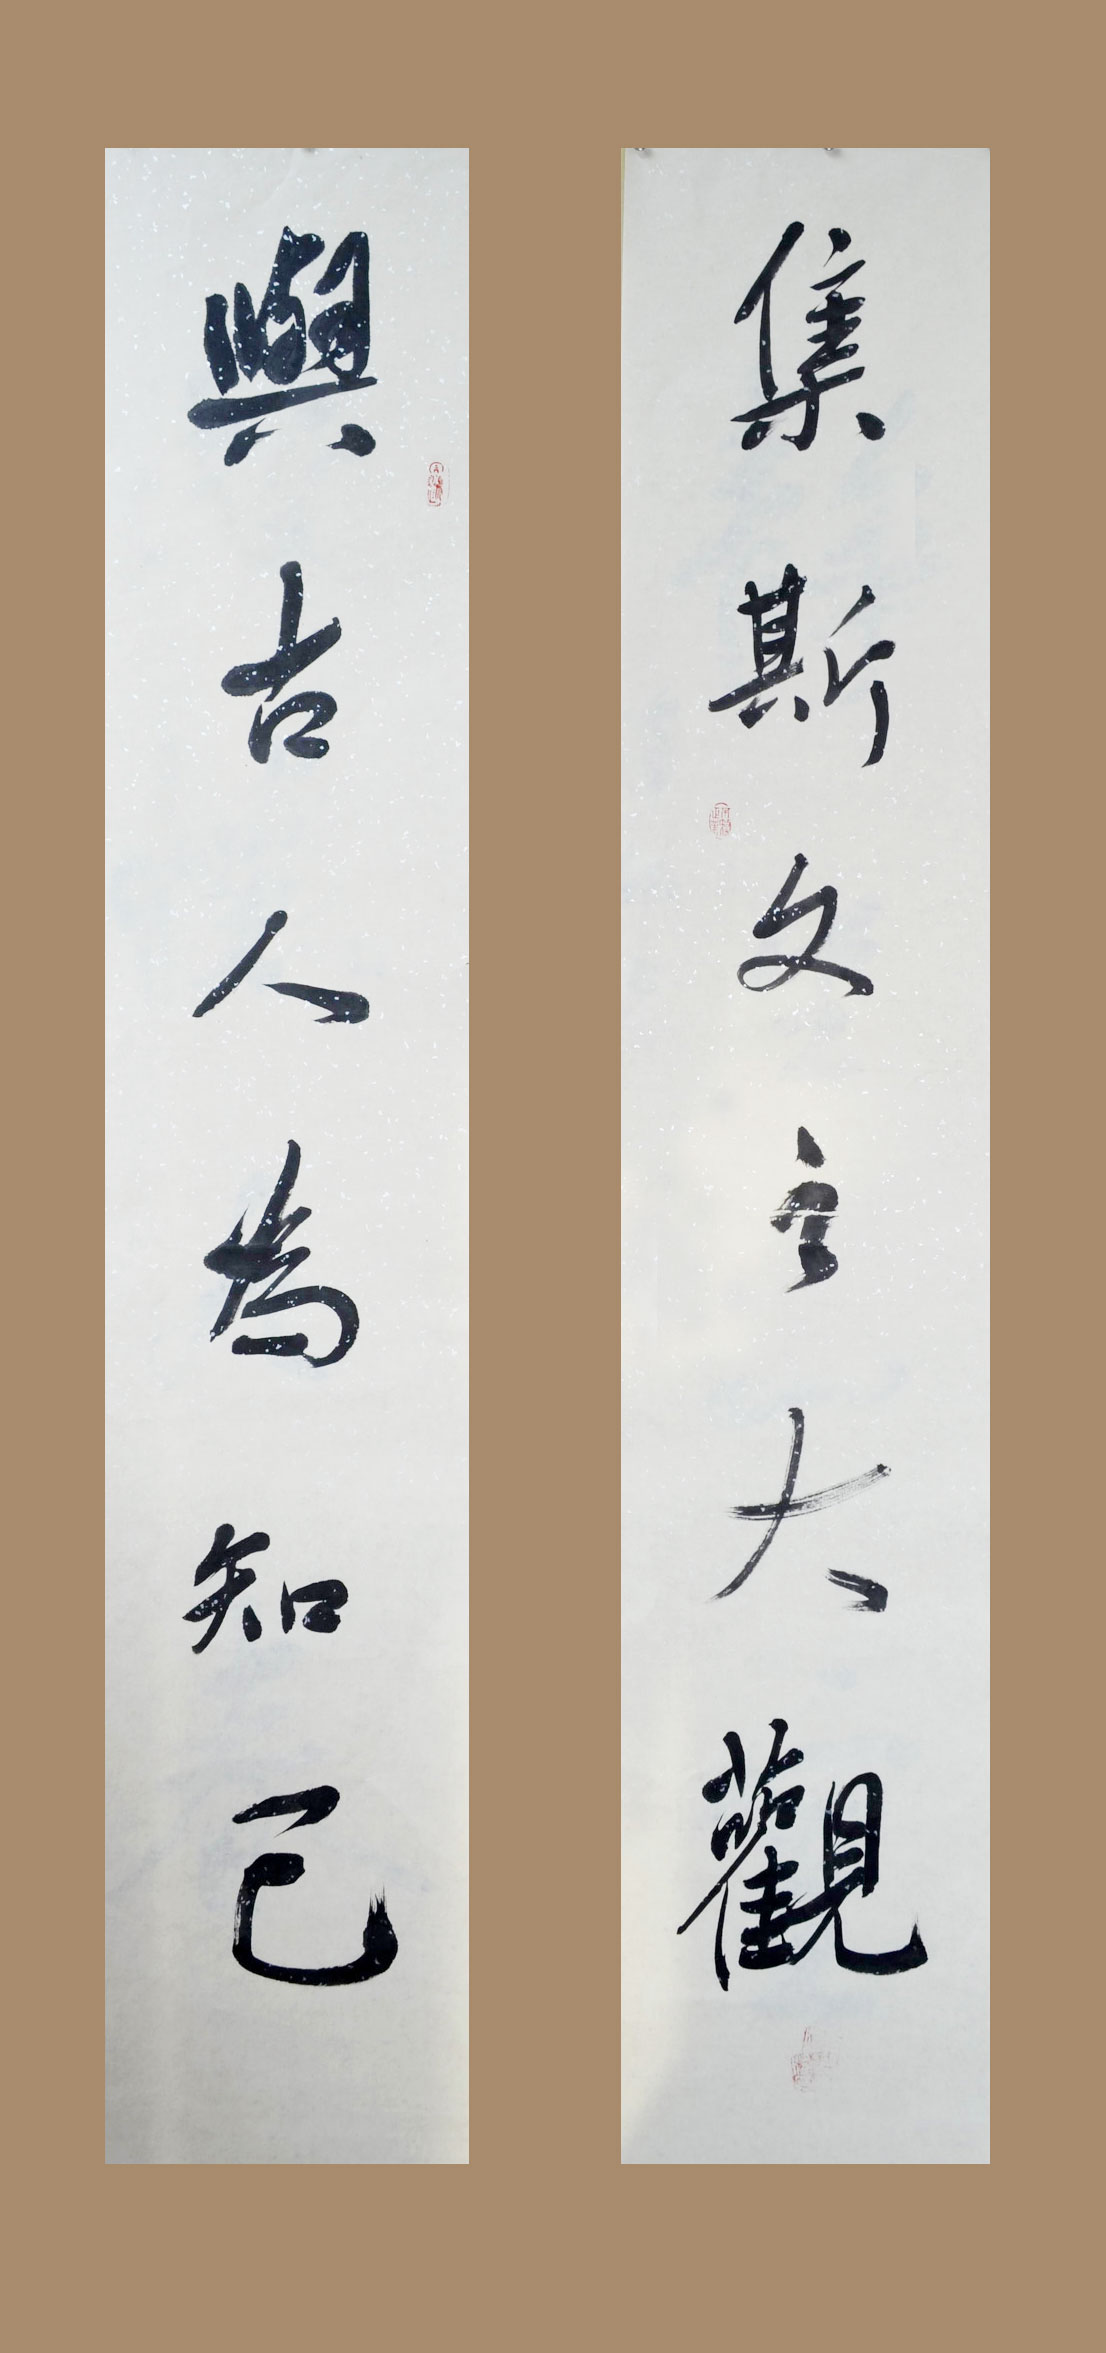 集斯文之大觀
與古人為知己